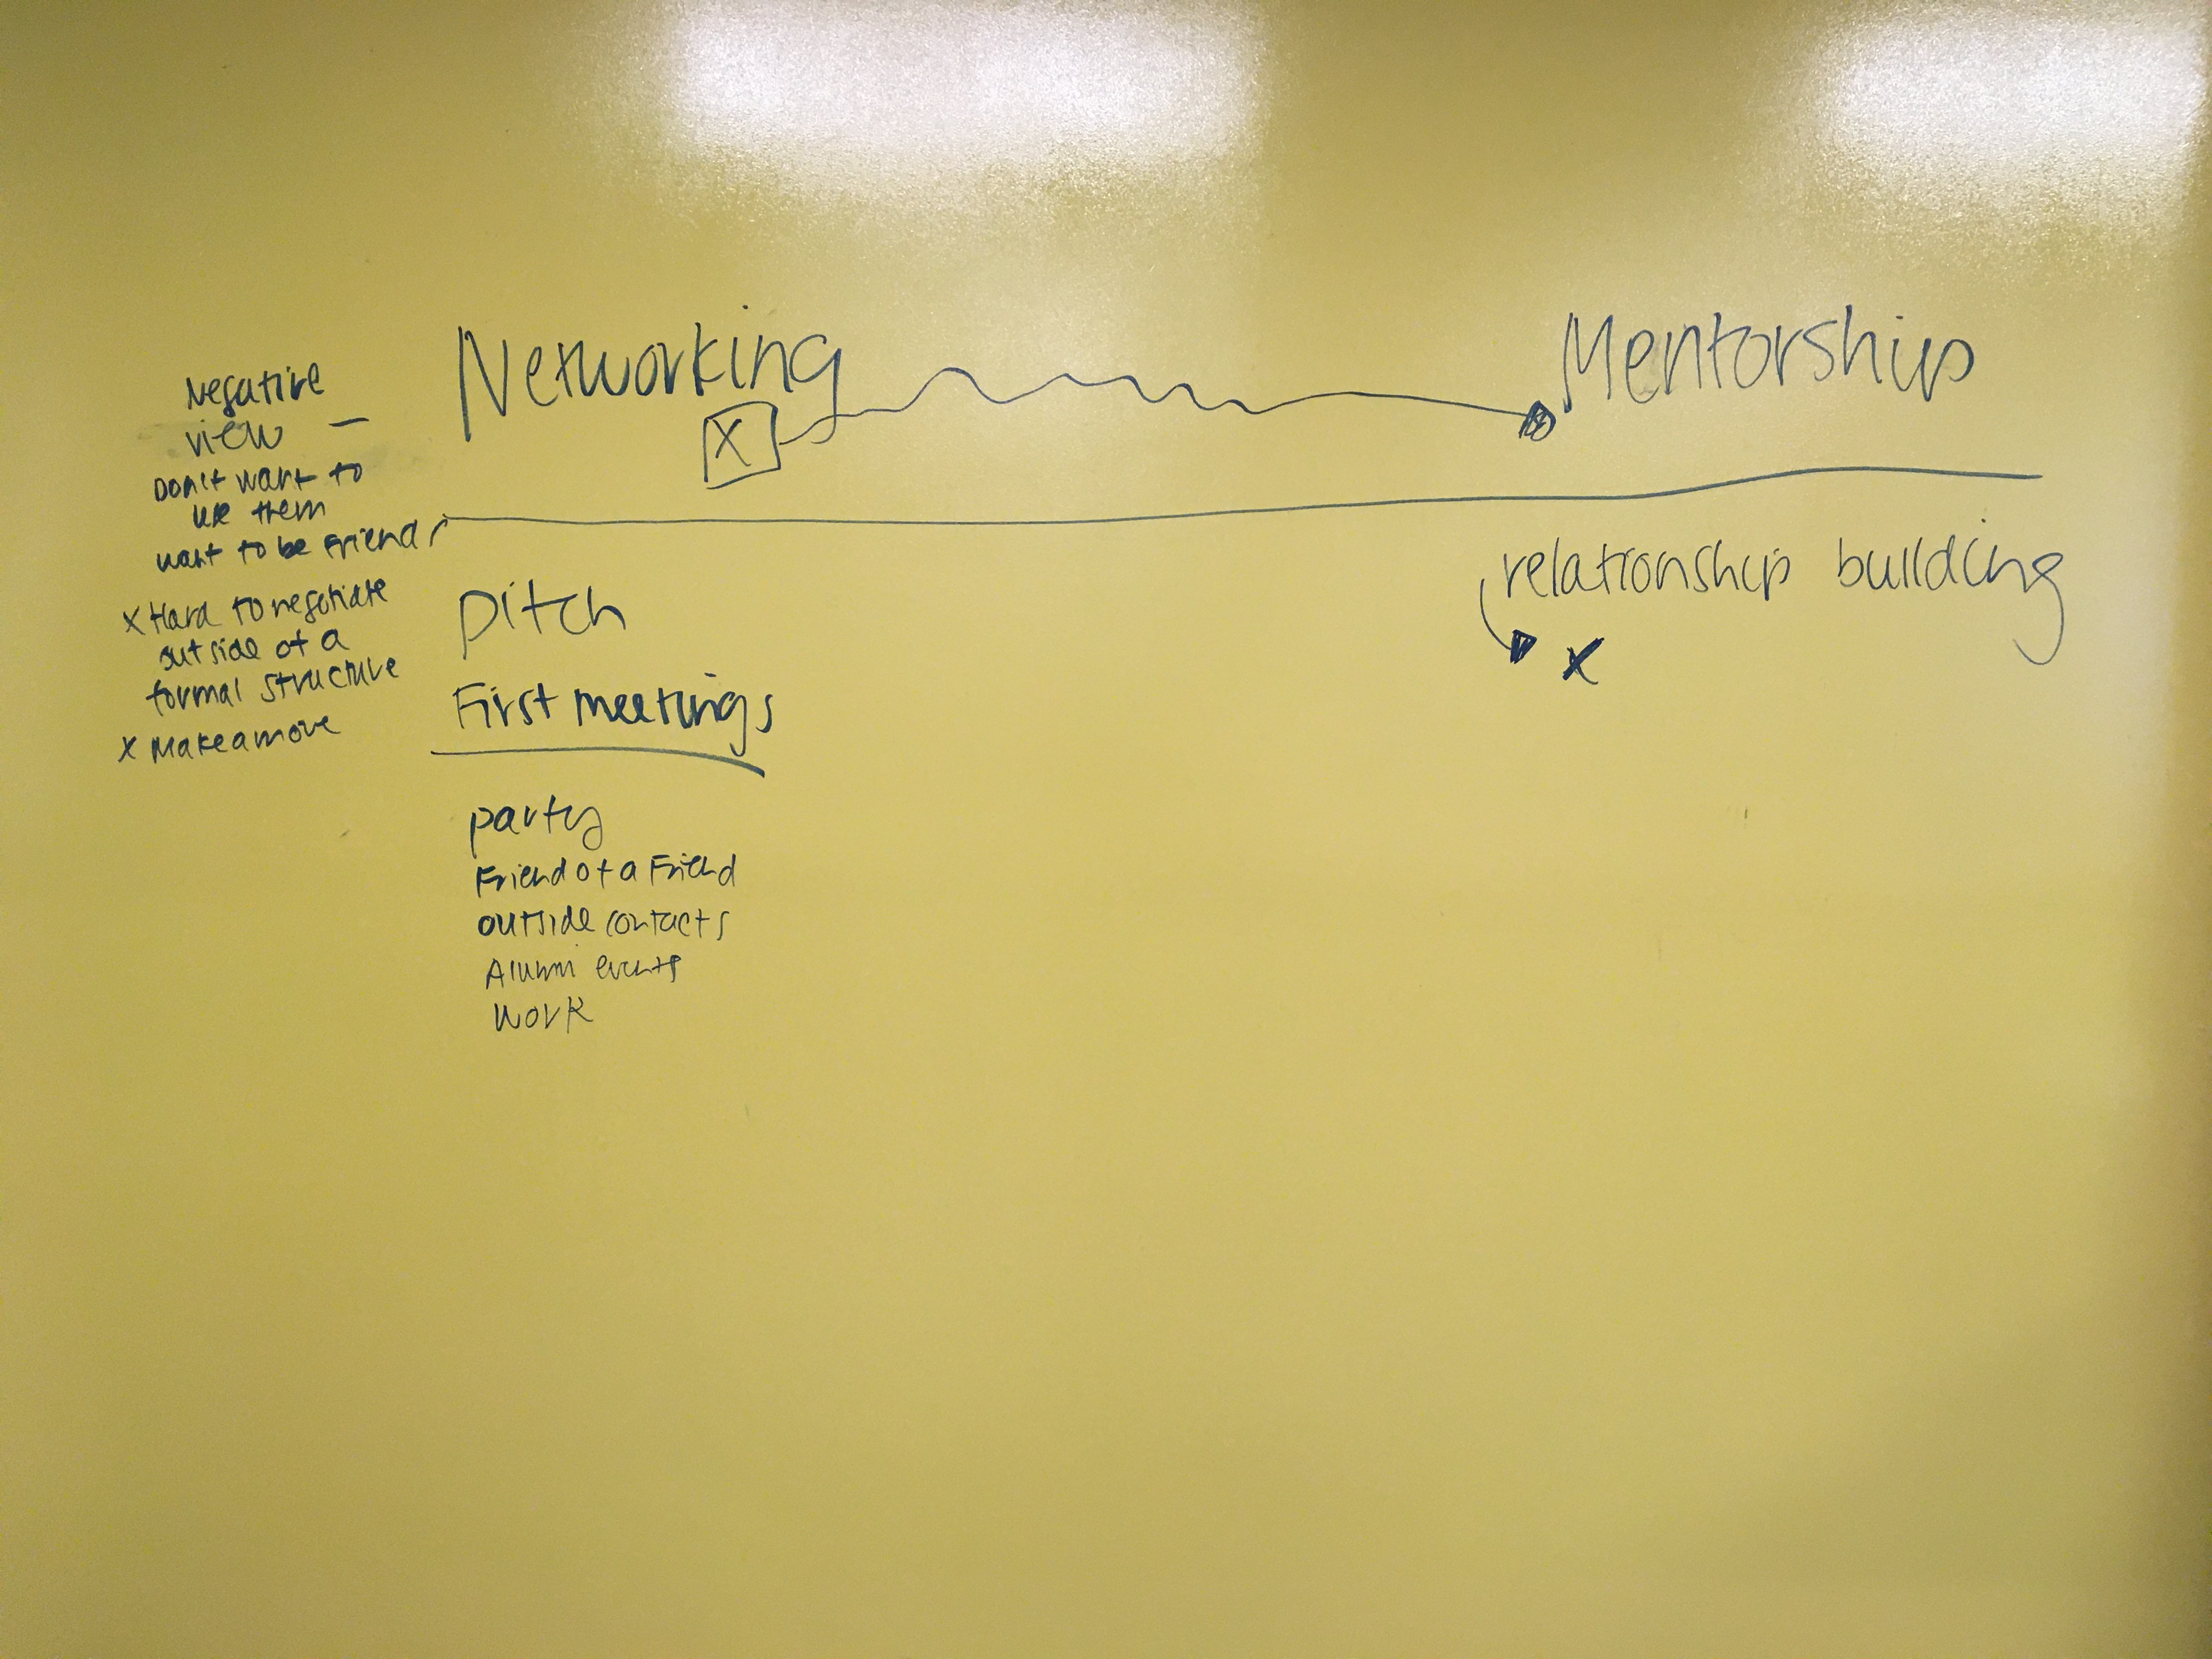 Negative
view —
Don't want to
use them
want to be friends
x Hard to negotiate
outside of a
formal structure
x Make a move
Networking
X
Mentorship
pitch
First meetings
party
Friend of a Friend
outside contacts
Alumni events
work
relationship building
x